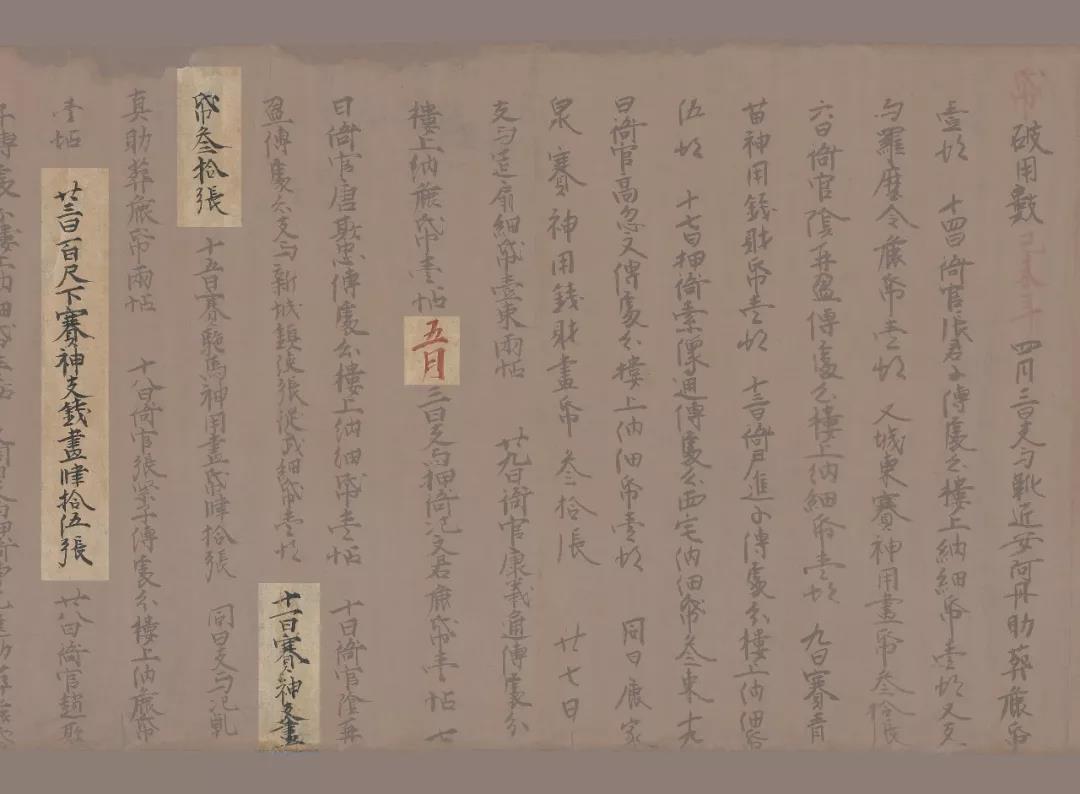 破用數 己未年 四月三日支与靴匠安阿丹助葬麁帋
壹帖 十四日衙官張君子傳處分樓上納細帋壹帖又支
与羅麼令麁帋壹帖 又城東賽神用畫帋叁拾張
六日衙官陰再盈傳處分樓上納細帋壹帖 九日賽青
苗神用錢財帋壹帖 日衙進子傳處分樓上納細帋
伍帖 十七日押衙索通傳處分西宅納細帋叁束 十九
日衙官高忽傳處分樓上納細帋壹帖 同日麁家
泉賽神用錢財畫帋叁拾張 廿七日
支与扇細帋壹束兩帖 廿九日衙官康義通傳處分
樓上納麁帋壹帖 五月三日支与押衙氾文君麁帋壹帖 七
日衙官唐欺忠傳處分樓上納細帋壹帖 十日衙官陰再
盈傳處分支与新城鎮使張從武細帋壹帖 十一日賽神支畫
帋叁拾張 十五日賽駞馬神用畫帋肆拾張 同日支与氾
真助葬麁帋兩帖 十八日衙官張紫子傳處分樓上納麁帋
壹帖 廿三日百尺下賽神支錢畫肆拾伍張 廿八日衙官趙